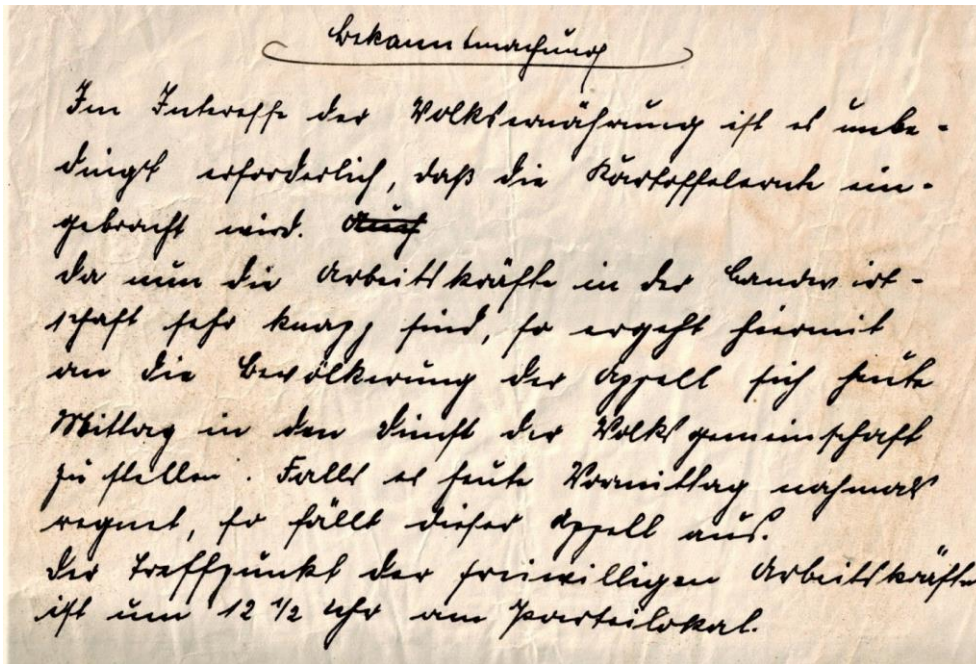 Bekanntmachung
Im Interesse der Volksernährung ist es unbe-
dingt erforderlich, daß die Kartoffelernte ein-
gebracht wird. Auf
Da nun die Arbeitskräfte in der Landwirt-
schaft sehr knapp sind, so ergeht hiermit
an die Bevölkerung der Appell sich heute
Mittag in den Dienst der Volksgemeinschaft
zu stellen. Falls es heute Vormittag nochmals
regnet, so fällt dieser Appell aus.
Der Treffpunkt der freiwilligen Arbeitskräfte
ist um 12 1/2 Uhr am Parteilokal.